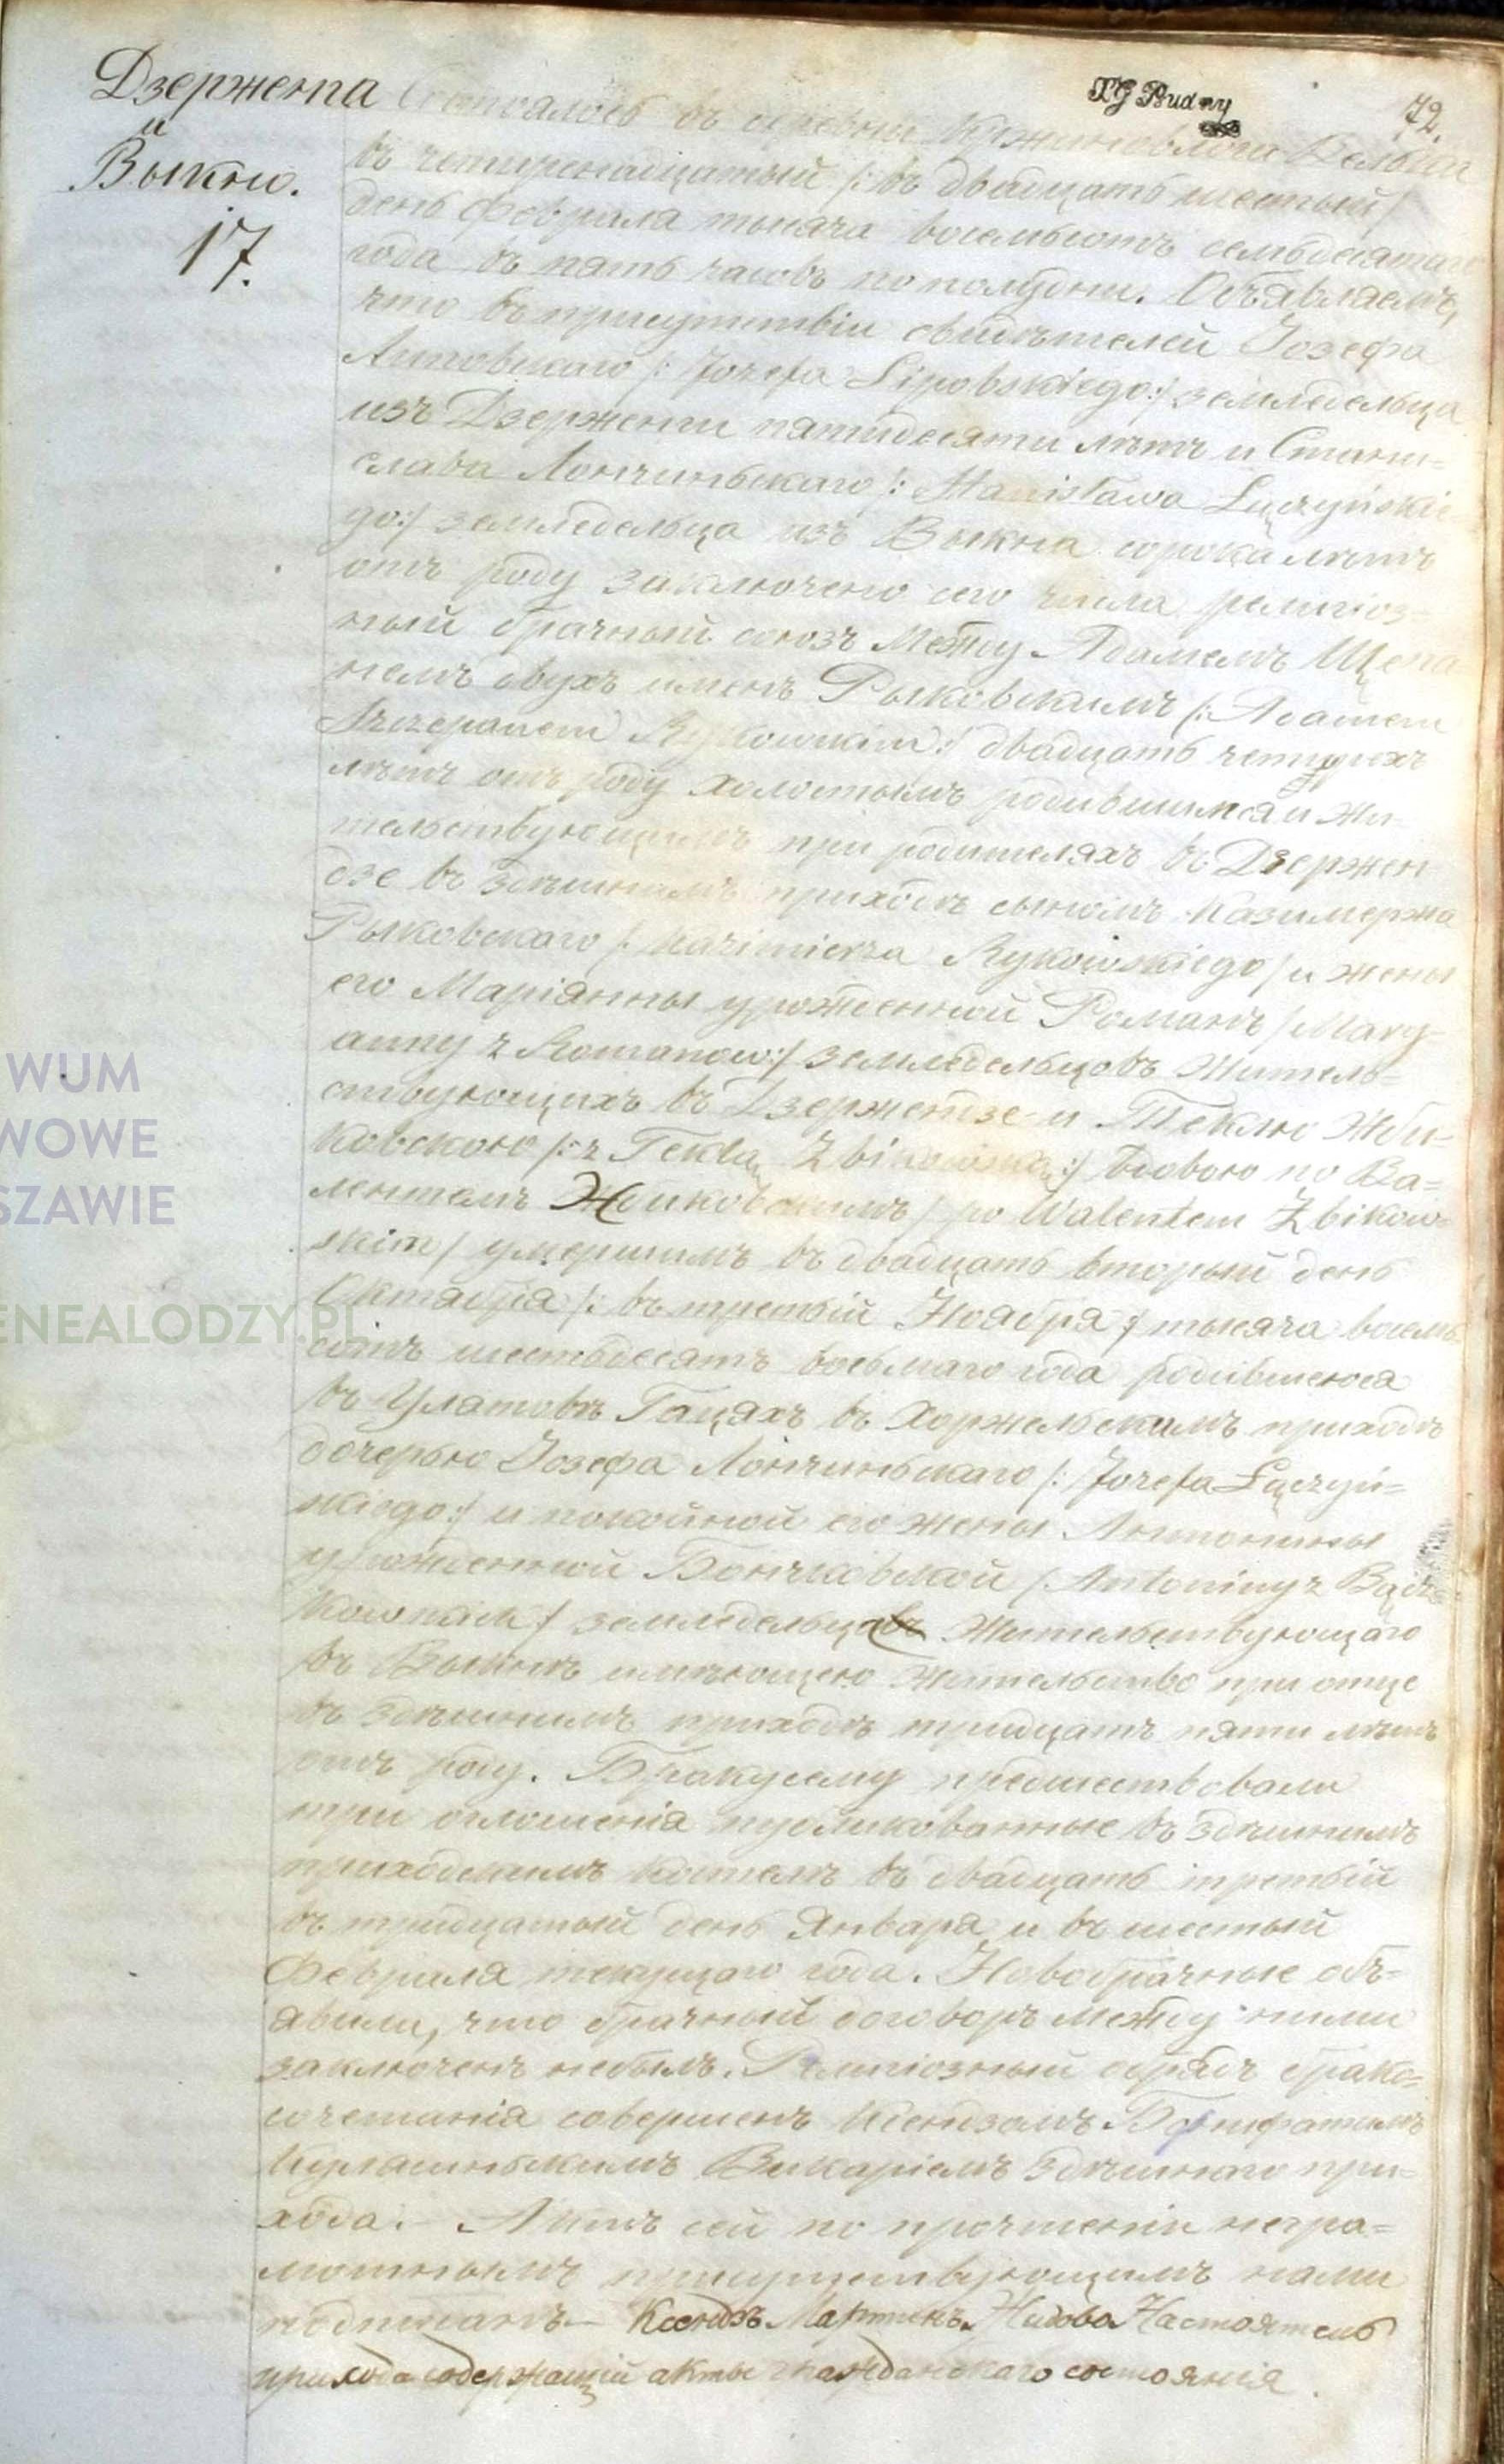 Дзержента
и
Выкно.
17.
XG Budny
72.
Состоялось въ деревни Кржиновлога Велька
въ четырнадцатый /: въ двадцать шестый /
день Февраля тысяча восемьсотъ семьдесятаго
года въ пять часовъ по полудни. Объявляемъ,
что въ присутствіи свидѣтелей Іозефа
Липовскаго /: Józefa Lipowskiego :/ земледельца
изъ Дзерженты пятидесяти лѣтъ и Стани=
слава Лончиньскаго /: Stanisława Łączyńskie
go :/ земледельца изъ Выкна сорока лѣтъ
отъ роду заключено сего числа религіоз=
ный брачный союзъ Между Адамемъ Щепа
немъ двухъ именъ Рыковскимъ /: Adamem
Szczepanem Rykowskim :/ двадцать четырехъ
лѣтъ отъ роду холостымъ родившимся и жи=
тельствующимъ при родителяхъ въ Дзержен
дзе въ здѣшнимъ приходѣ сыномъ Казимержа
Рыковскаго /: Kazimierza Rykowskiego / и жены
его Маріянны урожденной Романъ / Mary=
anny z Romanow :/ земледельцовъ Житель=
ствующихъ въ Дзержендзе и Теклю Жби=
ковскою /: z Teklą Zbikowską :/ вдовою по Ва=
лентемъ Жбиковскимъ / po Walentem Zbikow=
skim / умершимъ въ двадцать вторый день
Октября /: въ третій Ноября :/ тысяча восемь
сотъ шестьдесятъ восьмаго года родившеюся
въ Улатовѣ Гацяхъ въ Хоржельскимъ приходѣ
дочерью Іозефа Лончиньскаго /: Józefa Łączyń=
skiego :/ и покойной его жены Антонины
урожденной Бончковской / Antoniny z Bącz
kowskich / земледельца Жительствующаго
въ Выкнѣ имѣющею жительство при отце
въ здѣшнимъ приходѣ тридцать пяти лѣтъ
отъ роду. Браку сему предшествовали
три оглошенія публикованные въ здѣшнимъ
приходскимъ костелѣ въ двадцать третій
въ тридцатый день Января и въ шестый
Февраля текущаго года. Новобрачные объ=
явили, что брачный договоръ между ними
заключенъ небылъ. Религіозный обрядъ брако=
сочетанія совершенъ Ксендзомъ
Викаріемъ здѣшняго при=
хода. — Актъ сей по прочтеніи негра=
мотнымъ присутствующимъ нами
подписанъ — Ксендзъ Мартинъ Настоятель
прихода содержащій акты гражданскаго состоянія.
WUM
WOWE
SZAWIE
ENEALODZY.PL